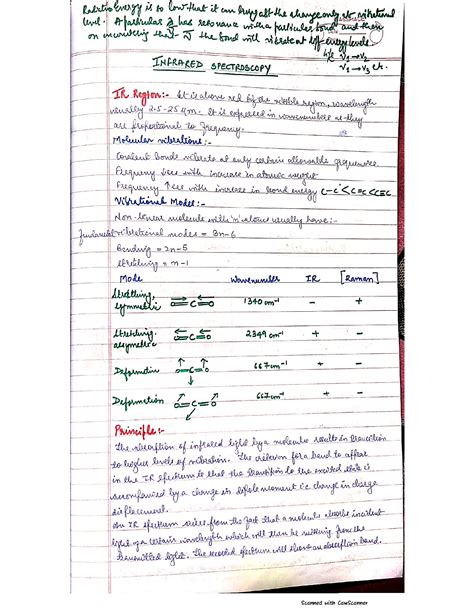 energy is so low that it can bring abt the change only at vibrational
level. A particular has resonance with a particular bond and then
on increasing that the bond will vibrate at diff energy levels
b/c v₁→v₂
v₁→v₃ etc.
INFRARED SPECTROSCOPY
IR Region:- It is above red of the visible region, wavelength
usually 2.5-25 μm. It is expressed in wavenumbers as they
are proportional to frequency.
Molecular vibrations:-
Covalent bonds vibrate at only certain allowable frequencies
Frequency ↓ses with increase in atomic weight
Frequency ↑ses with increase in bond energy C-C<C=C<C≡C
Vibrational Modes:-
Non-linear molecule with 'n' atoms usually have:-
fundamental vibrational modes = 3n-6
Bending = 2n-5
Stretching = n-1
Mode Wavenumber IR [Raman]
Stretching, symmetric O=C=O 1340 cm⁻¹ - +
Stretching, asymmetric O=C=O 2349 cm⁻¹ + -
Deformation O=C=O 667 cm⁻¹ + -
Deformation O=C=O 667 cm⁻¹ + -
Principle:-
The absorption of infrared light by a molecule results in transition
to higher levels of vibration. The criterion for a band to appear
in the IR spectrum is that the transition to the excited state is
accompanied by a change in dipole moment i.e change in charge
displacement.
An IR spectrum arises from the fact that a molecule absorbs incident
light of a certain wavelength which will then be missing from the
transmitted light. The recorded spectrum will show an absorption band.
Scanned with CamScanner